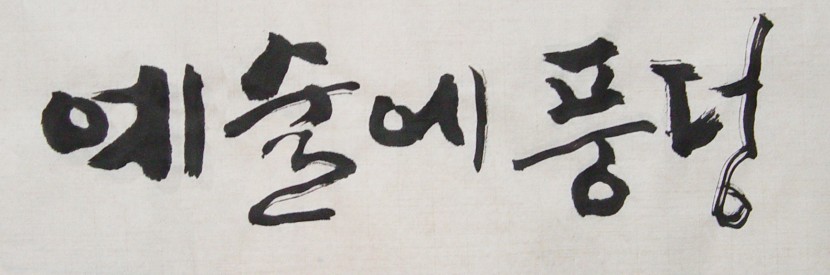 예술에 풍덩